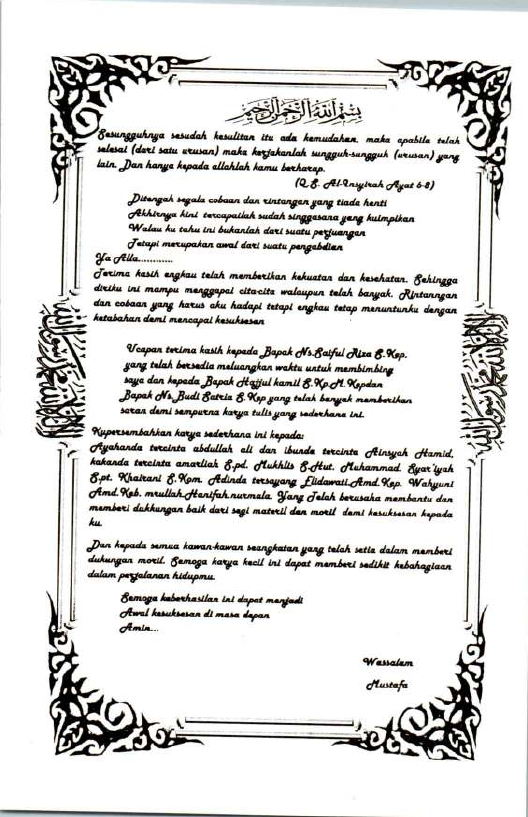 بسم الله الرحمن الرحيم
Sesungguhnya sesudah kesulitan itu ada kemudahan, maka apabila telah
selesai (dari satu urusan) maka kerjakanlah sungguh-sungguh (urusan) yang
lain. Dan hanya kepada allahlah kamu berharap.
(Q.S. Al-Insyirah Ayat 6-8)
Ditengah segala cobaan dan rintangan yang tiada henti
Akhirnya kini tercapailah sudah singgasana yang kuimpikan
Walau ku tahu ini bukanlah dari suatu perjuangan
Tetapi merupakan awal dari suatu pengabdian
Ya Alla............
Terima kasih engkau telah memberikan kekuatan dan kesehatan, Sehingga
diriku ini mampu menggapai cita-cita walaupun telah banyak. Rintanngan
dan cobaan yang harus aku hadapi tetapi engkau tetap menuntunku dengan
ketabahan demi mencapai kesuksesan
Ucapan terima kasih kepada Bapak Ns.Saiful Riza S.Kep.
yang telah bersedia meluangkan waktu untuk membimbing
saya dan kepada Bapak Hajjul kamil S.Kp.M.Kepdan
Bapak Ns.Budi Satria S.Kep yang telah banyak memberikan
saran demi sempurna karya tulis yang sederhana ini.
Kupersembahkan karya sederhana ini kepada:
Ayahanda tercinta abdullah ali dan ibunda tercinta Ainsyah Hamid,
kakanda tercinta amarliah S.pd. Mukhlis S.Hut. Muhammad. Syar'iyah
S.pt. Khairani S.Kom. Adinda tersayang Elidawati.Amd.Kep. Wahyuni
Amd.Keb. mrullah.Hanifah.nurmala. Yang Telah berusaha membantu dan
memberi dukkungan baik dari segi materil dan moril demi kesuksesan kepada
ku.
Dan kepada semua kawan-kawan seangkatan yang telah setia dalam memberi
dukungan moril. Semoga karya kecil ini dapat memberi sedikit kebahagiaan
dalam perjalanan hidupmu.
Semoga keberhasilan ini dapat menjadi
Awal kesuksesan di masa depan
Amin...
Wassalam
Mustafa